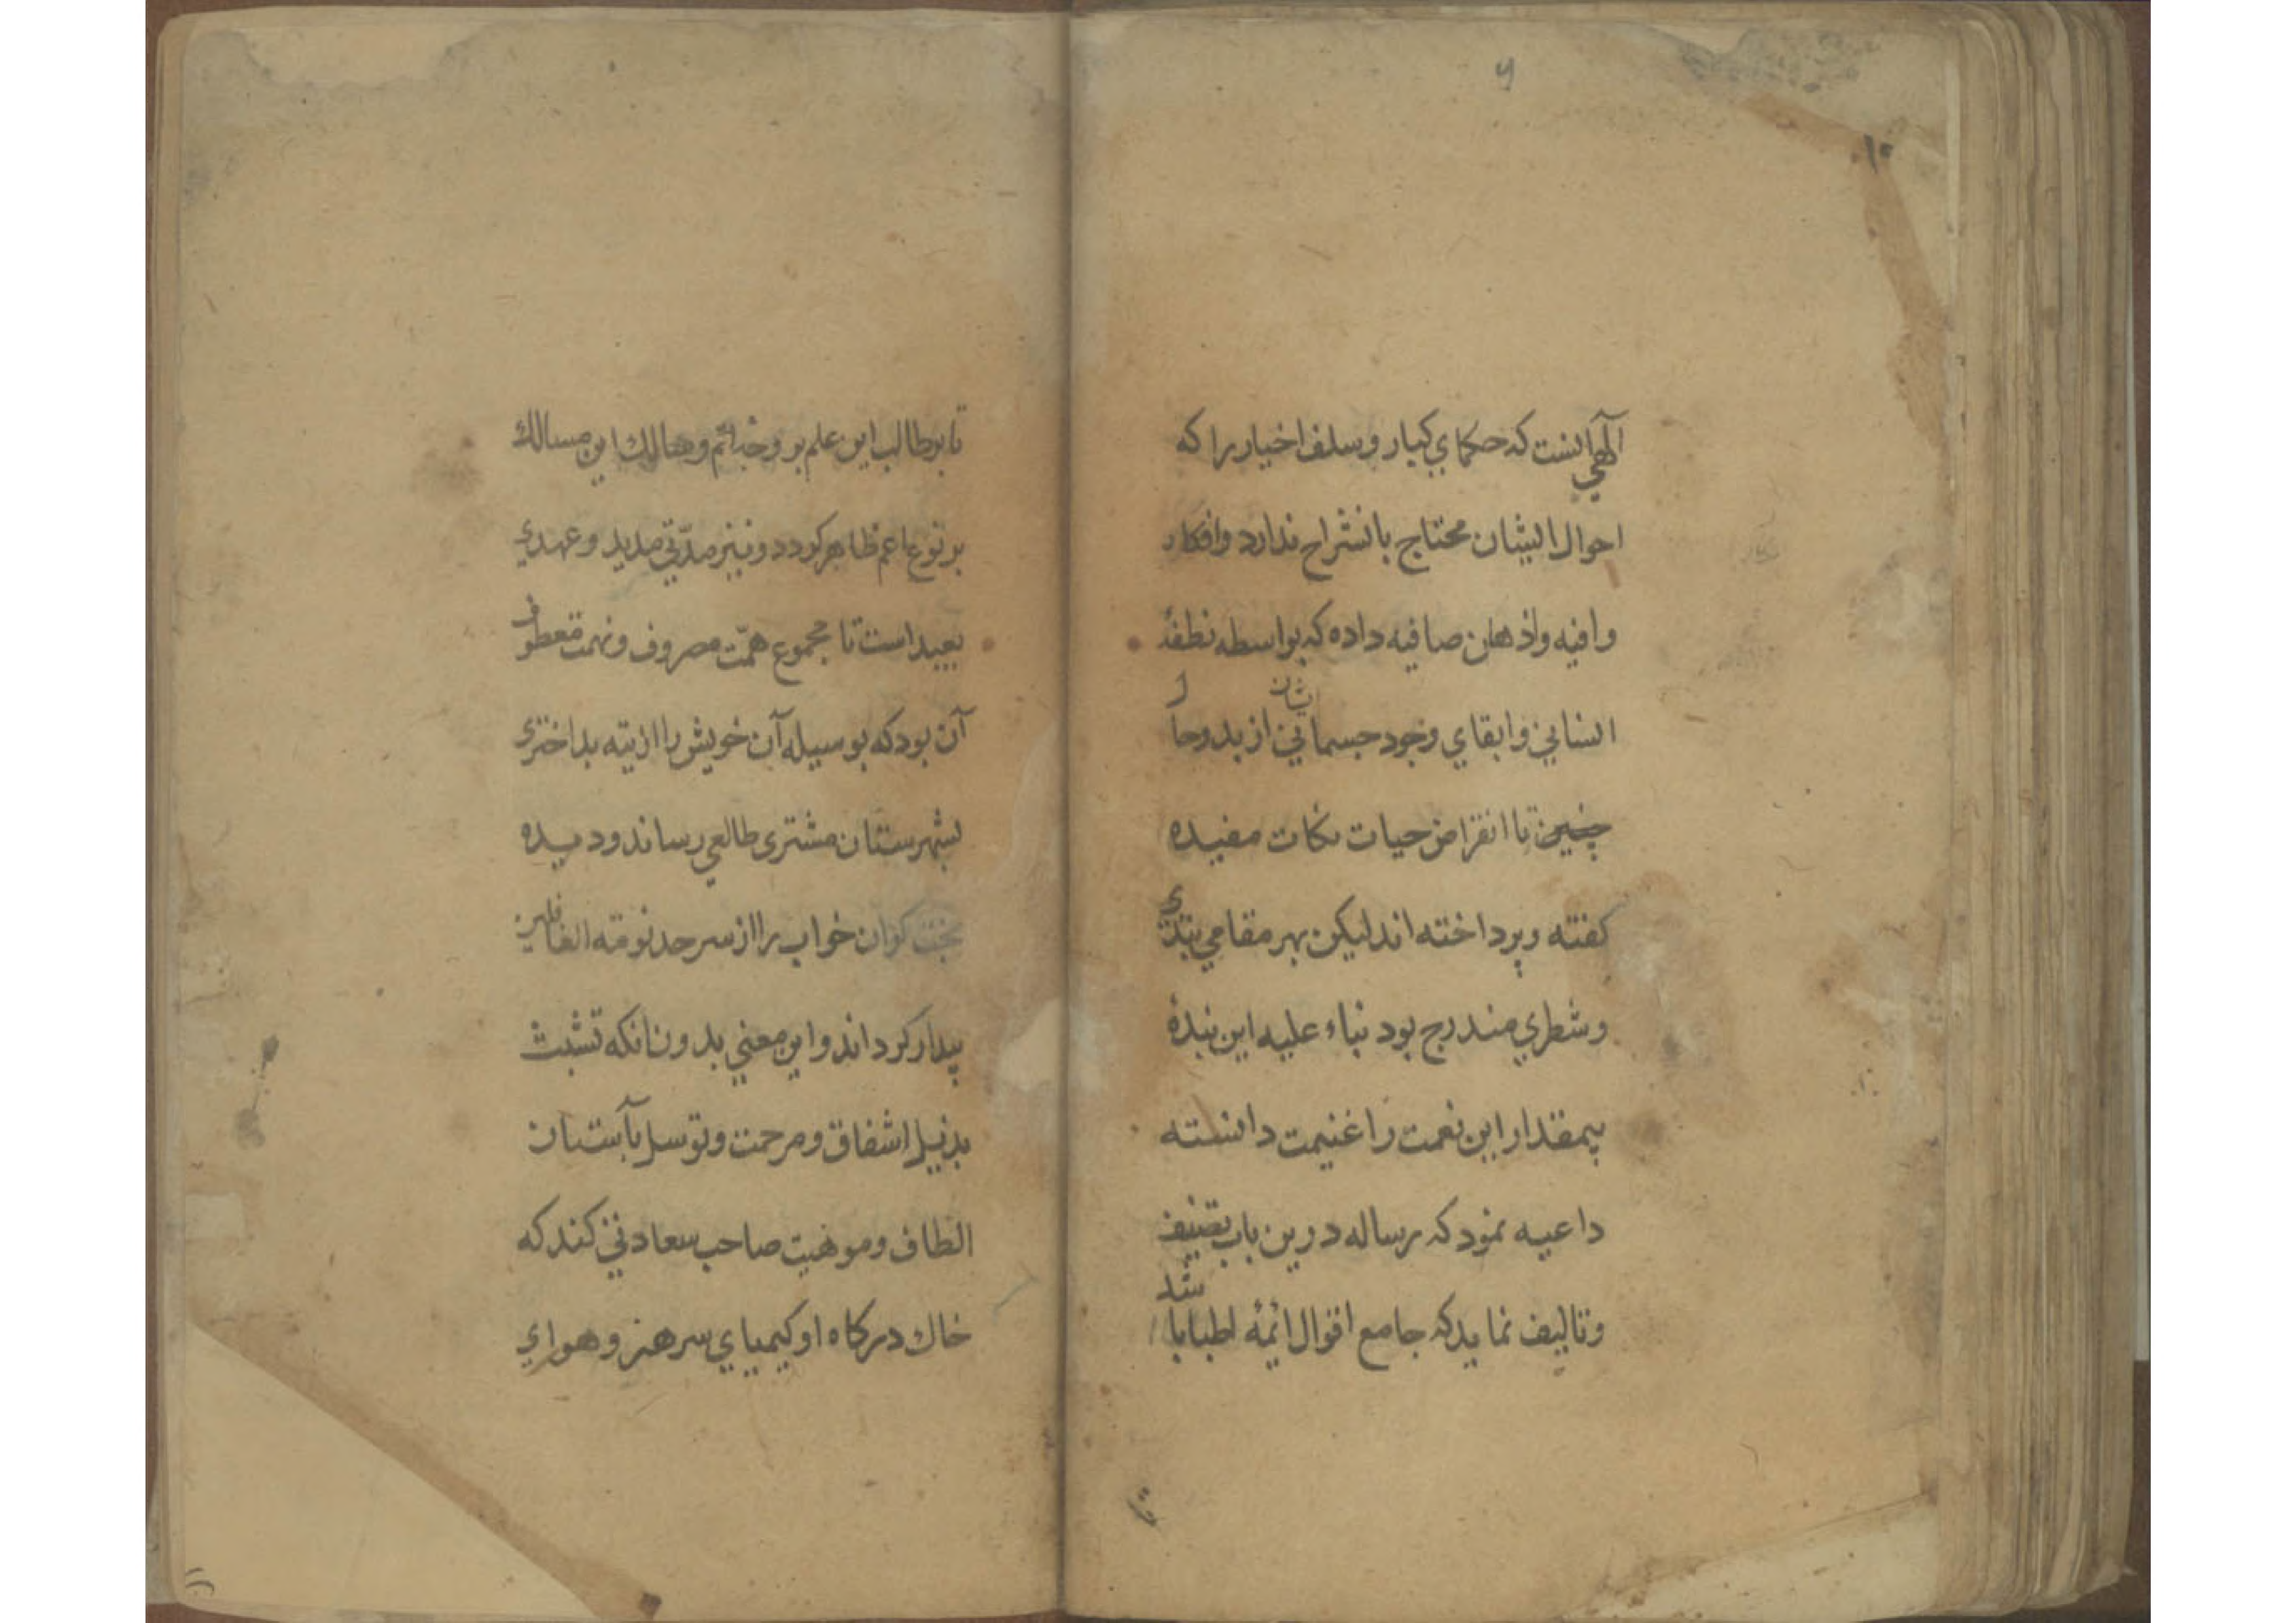 ۱۰
الهی آنست که حکمای کبار و سلف اخیار را که
احوال ایشان محتاج بانشراح ندارد وافکار
وافیه واذهان صافیه داده که بواسطه نطفهٔ
انسانی وابقای وجود جسمانی ایشان از بدو حال
چنین تا انقراض حیات نکات مفیده
کفته وپرداخته اند لیکن بهر مقامی نبذی
وشطری مندرج بود بناء علیه این بندهٔ
بیمقدار این نعمت را غنیمت دانسته
داعیه نمود که رساله درین باب تصنیف
وتالیف نماید که جامع اقوال ائمهٔ اطبا باشد
تا بر طالب این علم بر وجه اتم وسالك این مسالك
بر نوع اعم ظاهر کردد ونیز مدّتی مدید وعهدی
بعید است تا مجموع همّت مصروف ونهمت معطوف
آن بود که بوسیله آن خویش را از تیه بد اختری
بشهرستان مشتری طالعی رساند ودیده
بخت کران خواب را از سرحد نومة الغافلین
بیدار کرداند واین معنی بدون انکه تشبث
بذیل اشفاق ومرحمت وتوسل بآستان
الطاف وموهبت صاحب سعادتی کند که
خاك درکاه او کیمیای سر هنر وهوای
تا بر
۱۱